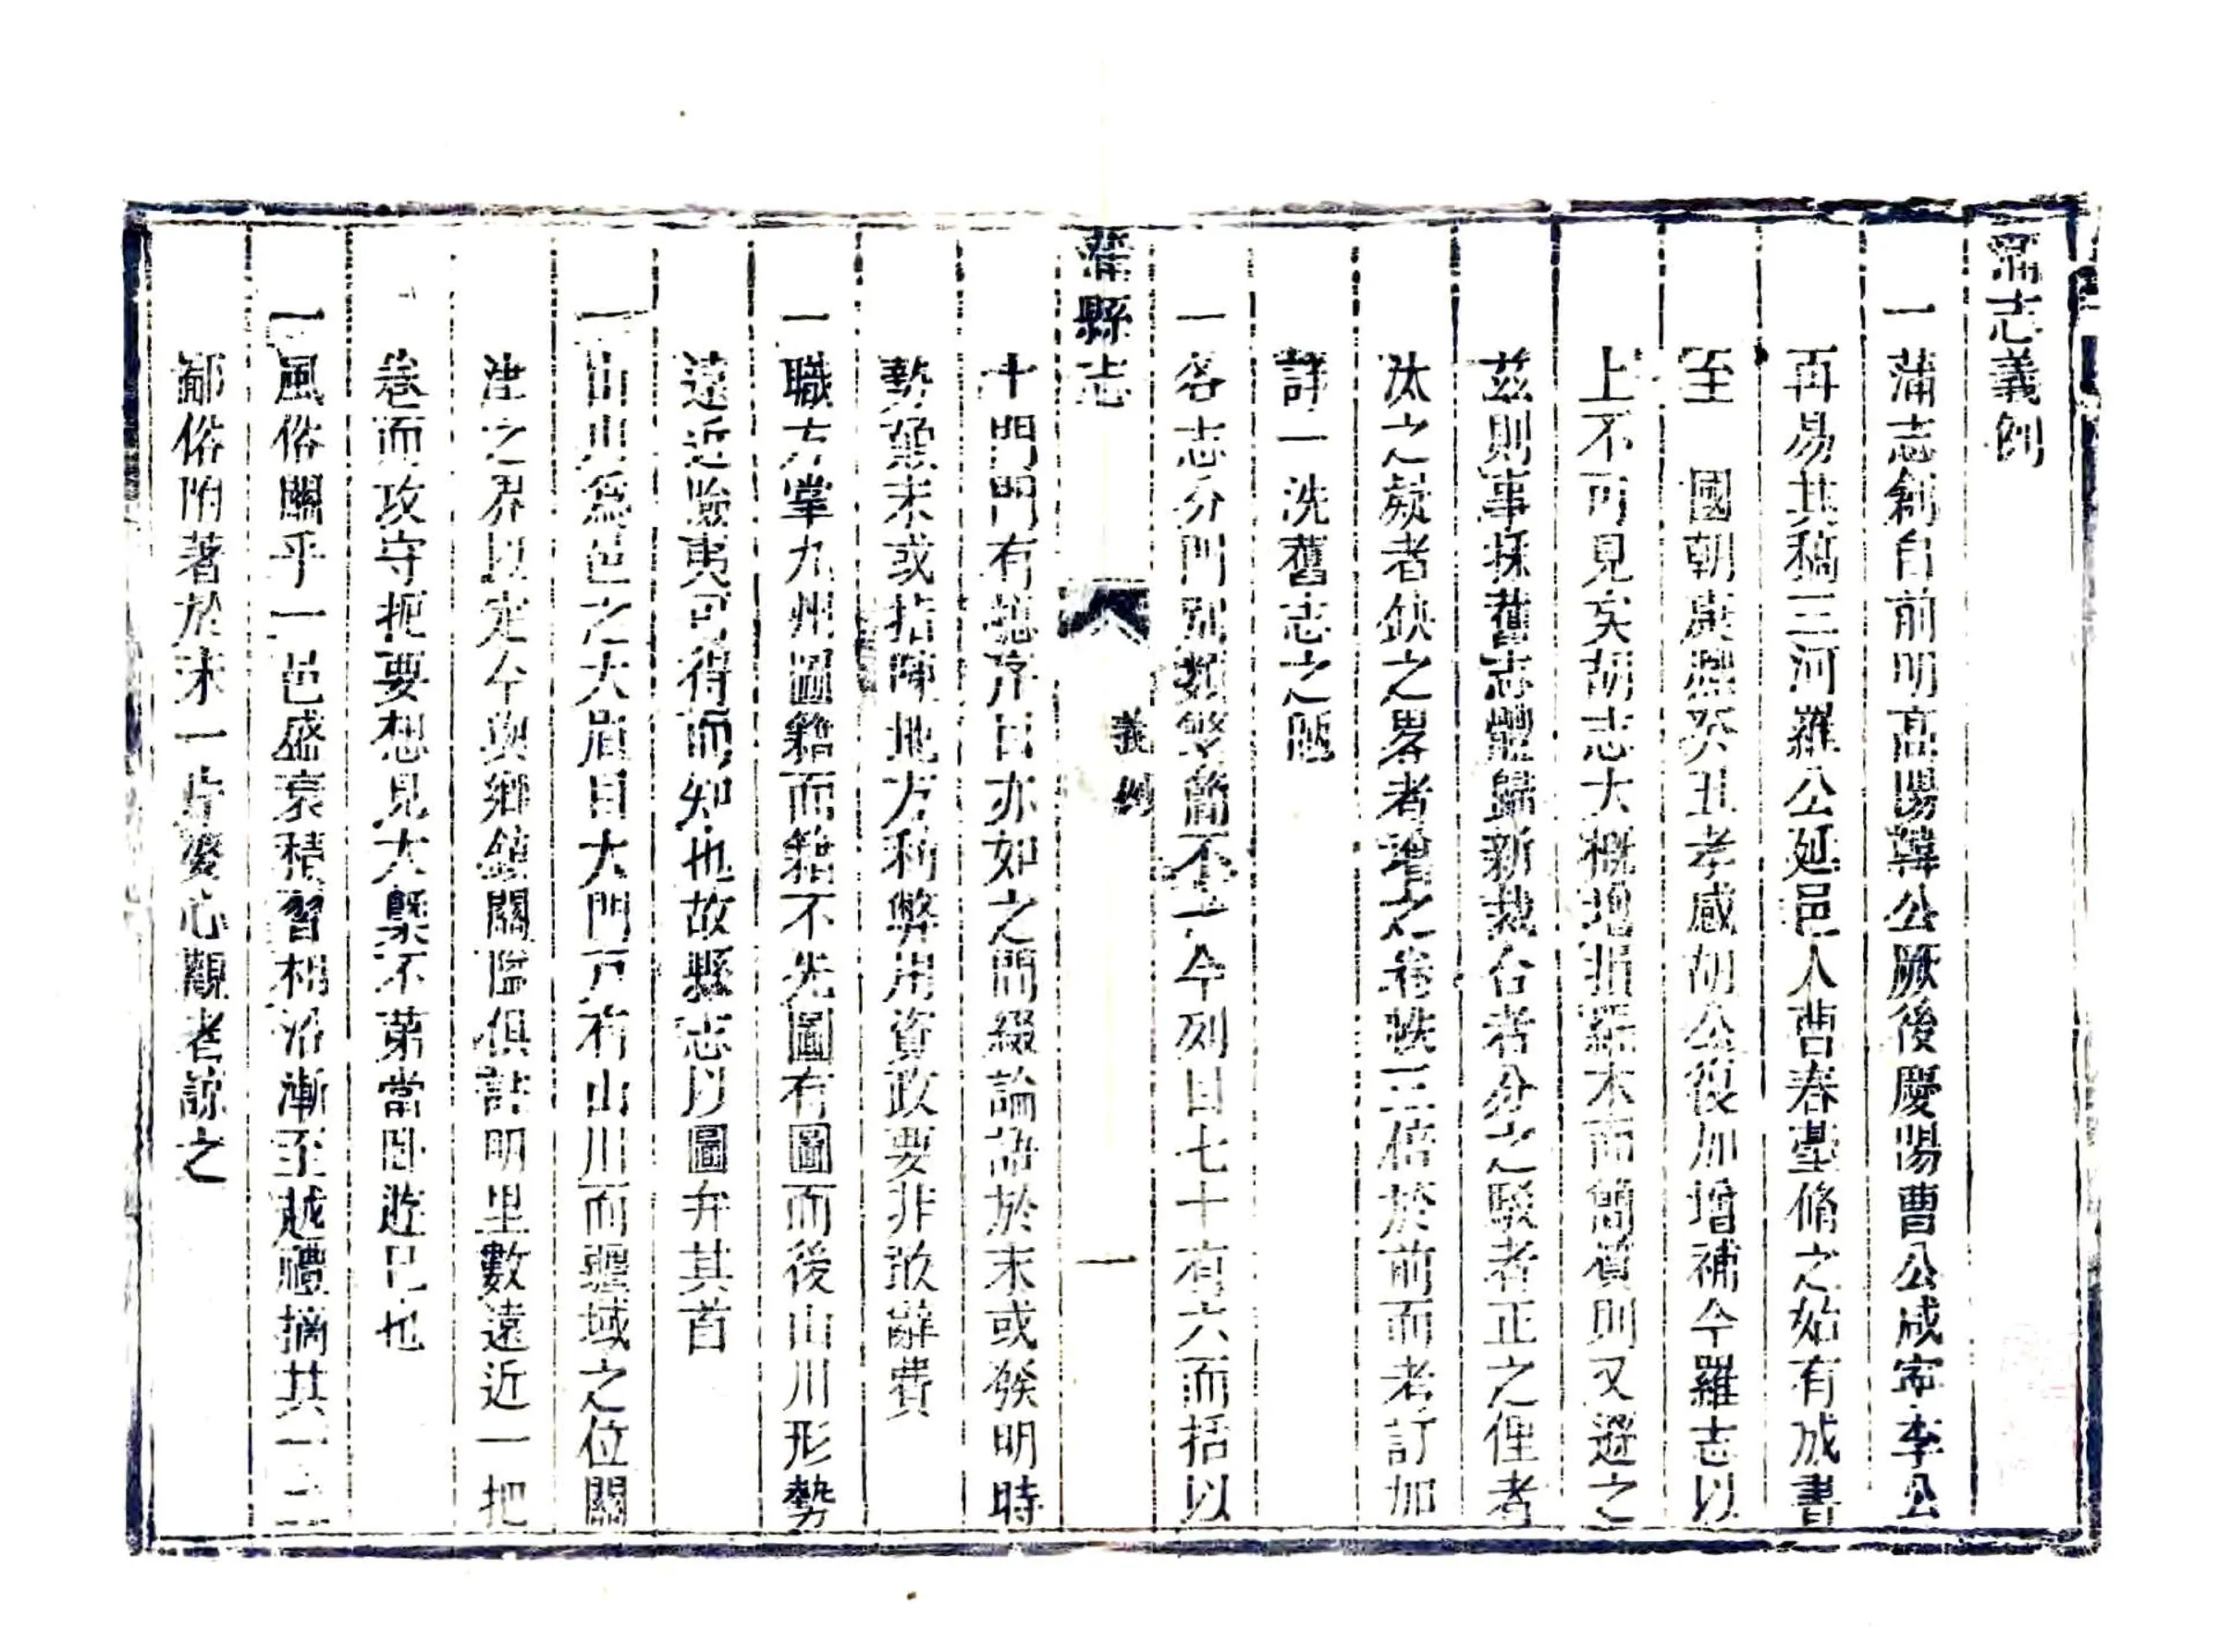 蒲志義例
一蒲志創自前明高陽韓公厥後慶陽曹公咸寧李公
再易其稿三河羅公延邑人曹春臺脩之始有成書
至 國朝康熙癸丑孝感胡公復加增補今羅志以
上不可見矣胡志大概增損羅本而簡質則又遜之
茲則事採舊志體歸新裁合者分之駁者正之俚者
汰之疑者缺之畧者增之卷帙三倍於前而考訂加
詳一洗舊志之陋
一各志分門別類繁簡不一今列目七十有六而括以
蒲縣志 義例 一
十門門有總序目亦如之間綴論語於末或發明時
勢顛末或指陳地方利弊用資政要非敢辭費
一職方掌九州圖籍而籍不先圖有圖而後山川形勢
遠近險夷可得而知也故縣志以圖弁其首
一山川爲邑之大眉目大門戸有山川而疆域之位關
津之界以定今與鄉鎮關隘俱詳明里數遠近一把
卷而攻守扼要想見大槩不第當臥遊已也
一風俗關乎一邑盛衰積習相沿漸至越禮摘其一二
鄙俗附著於末一片婆心觀者諒之